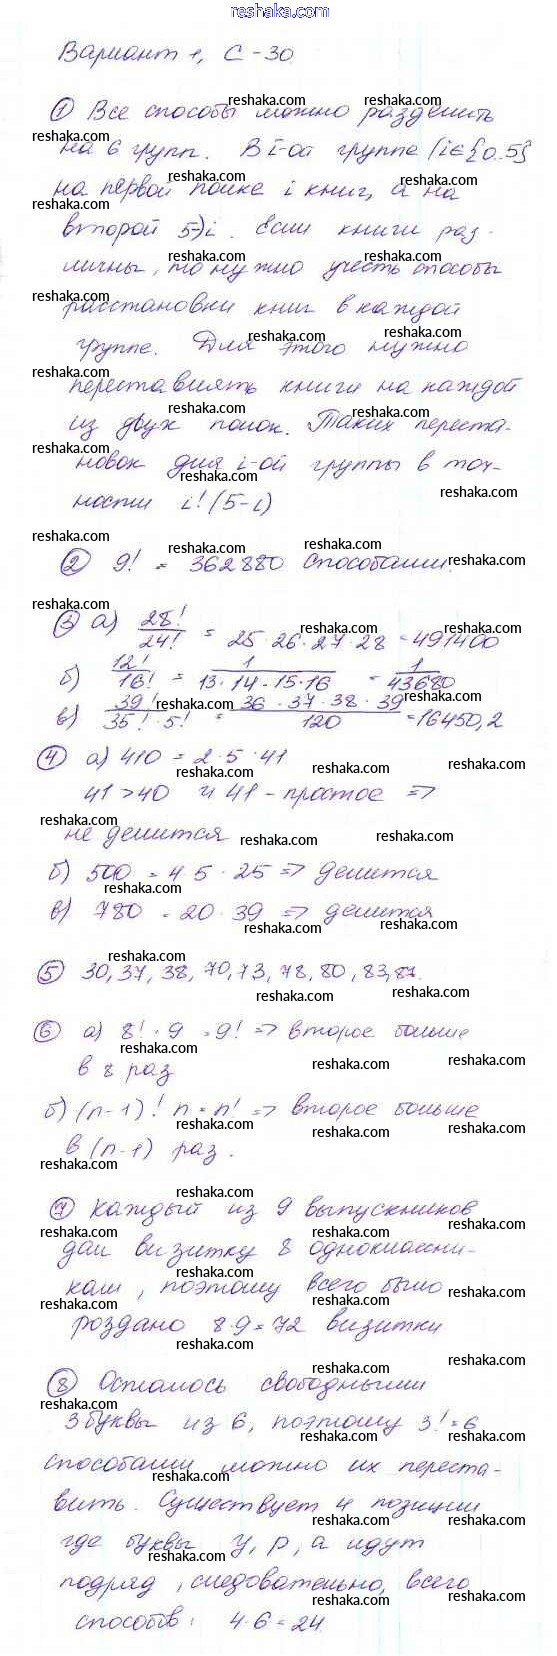 reshaka.com
Вариант 1, С-30
① Все способы можно разделить
на 6 групп. В i-ой группе (i∈{0..5}
на первой полке i книг, а на
второй 5-i. Если книги раз-
личны, то нужно учесть способы
расстановки книг в каждой
группе. Для этого нужно
переставлять книги на каждой
из двух полок. Таких переста-
новок для i-ой группы в точ-
ности i!(5-i)
② 9! = 362880 способами.
③ а) 28!/24! = 25·26·27·28 = 491400
б) 12!/16! = 1/13·14·15·16 = 1/43680
в) 39!/35!·5! = 36·37·38·39/120 = 16450,2
④ а) 410 = 2·5·41
41>40 и 41 - простое =>
не делится
б) 500 = 4·5·25 => делится
в) 780 = 20·39 => делится
⑤ 30, 37, 38, 70, 73, 78, 80, 83, 87.
⑥ а) 8!·9 = 9! => второе больше
в 8 раз
б) (n-1)! n = n! => второе больше
в (n-1) раз.
⑦ Каждый из 9 выпускников
дал визитку 8 одноклассни-
кам, поэтому всего было
роздано 8·9=72 визитки
⑧ Осталось свободными
3 буквы из 6, поэтому 3!=6
способами можно их переста-
вить. Существует 4 позиции
где буквы у, р, а идут
подряд, следовательно, всего
способов: 4·6=24